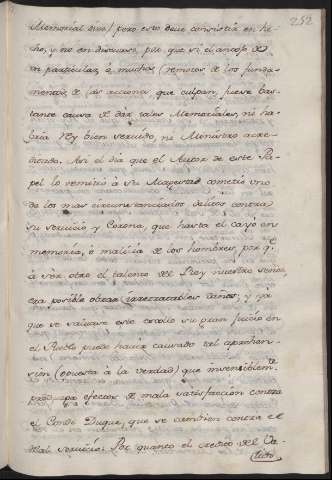 252
Memorial dice) pero esto deve consistir en he-
cho, y no en discurso, por que si el antojo de
un particular, ó muchos (remotos de los funda-
mentos de las acciones que culpan, fuese bas-
tante causa de dár tales Memoriales, ni ha-
bria Rey bien servido, ni Ministro acre-
ditado. Asi el dia que el Autor de este Pa-
pel lo remitió à su Magestad cometió uno
de los mas circunstanciados delitos contra
su servicio y Corona, que hasta el cayó en
memoria, ó malicia de los hombres, por q.e
à sér otro el talento del Rey nuestro señor
era posible obrar irretratables daños; y ya
que se salvase este escollo su gran juicio en
el Pueblo puede haver causado tal aprehen-
sion (opuesta à la verdad) que insensiblem.te
produzca efectos de mala satisfaccion contra
el Conde Duque, que es tambien contra el
Real servicio. Por quanto el credito del Va-
lido